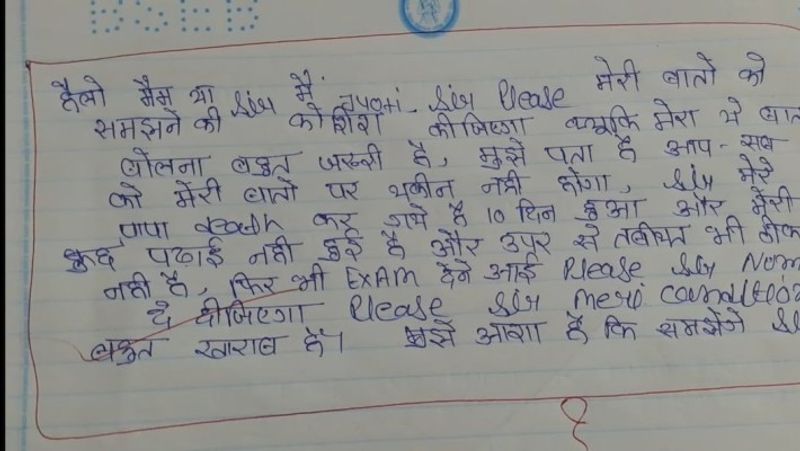 BSEB
हैलो मैम् या Sir मैं Jyoti Sir Please मेरी बातो को
समझने की कोशिश कीजिएगा क्युकि मेरा ये बात
बोलना बहुत जरूरी है, मुझे पता है आप-सब
को मेरी बातो पर यकीन नही होगा, Sir मेरे
पापा death कर गये है 10 दिन हुआ और मेरी
कुछ पढाई नही हुई है और उपर से तबीयत भी ठीक
नही है, फिर भी EXAM देने आई Please Sir Num
दे दीजिएगा Please Sir meri condition
बहुत खराब हैं। मुझे आशा है कि समझेंजे